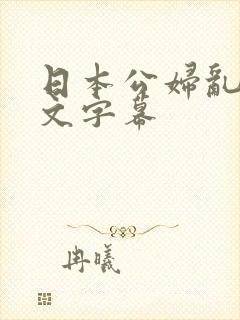 日本公婦亂
文字幕
冉曦